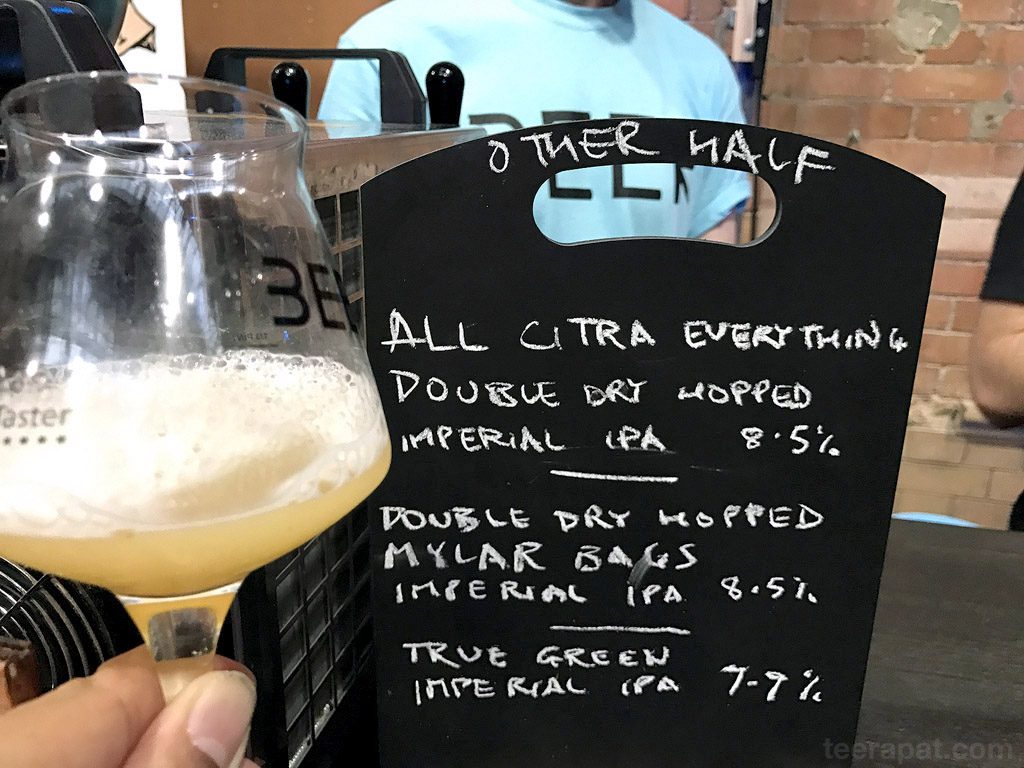 OTHER HALF
BEER
BE
Taster
ALL CITRA EVERYTHING
DOUBLE DRY HOPPED
IMPERIAL IPA 8.5%
DOUBLE DRY HOPPED
MYLAR BAGS
IMPERIAL IPA 8.5%
TRUE GREEN
IMPERIAL IPA 7-9%
teerapat.com